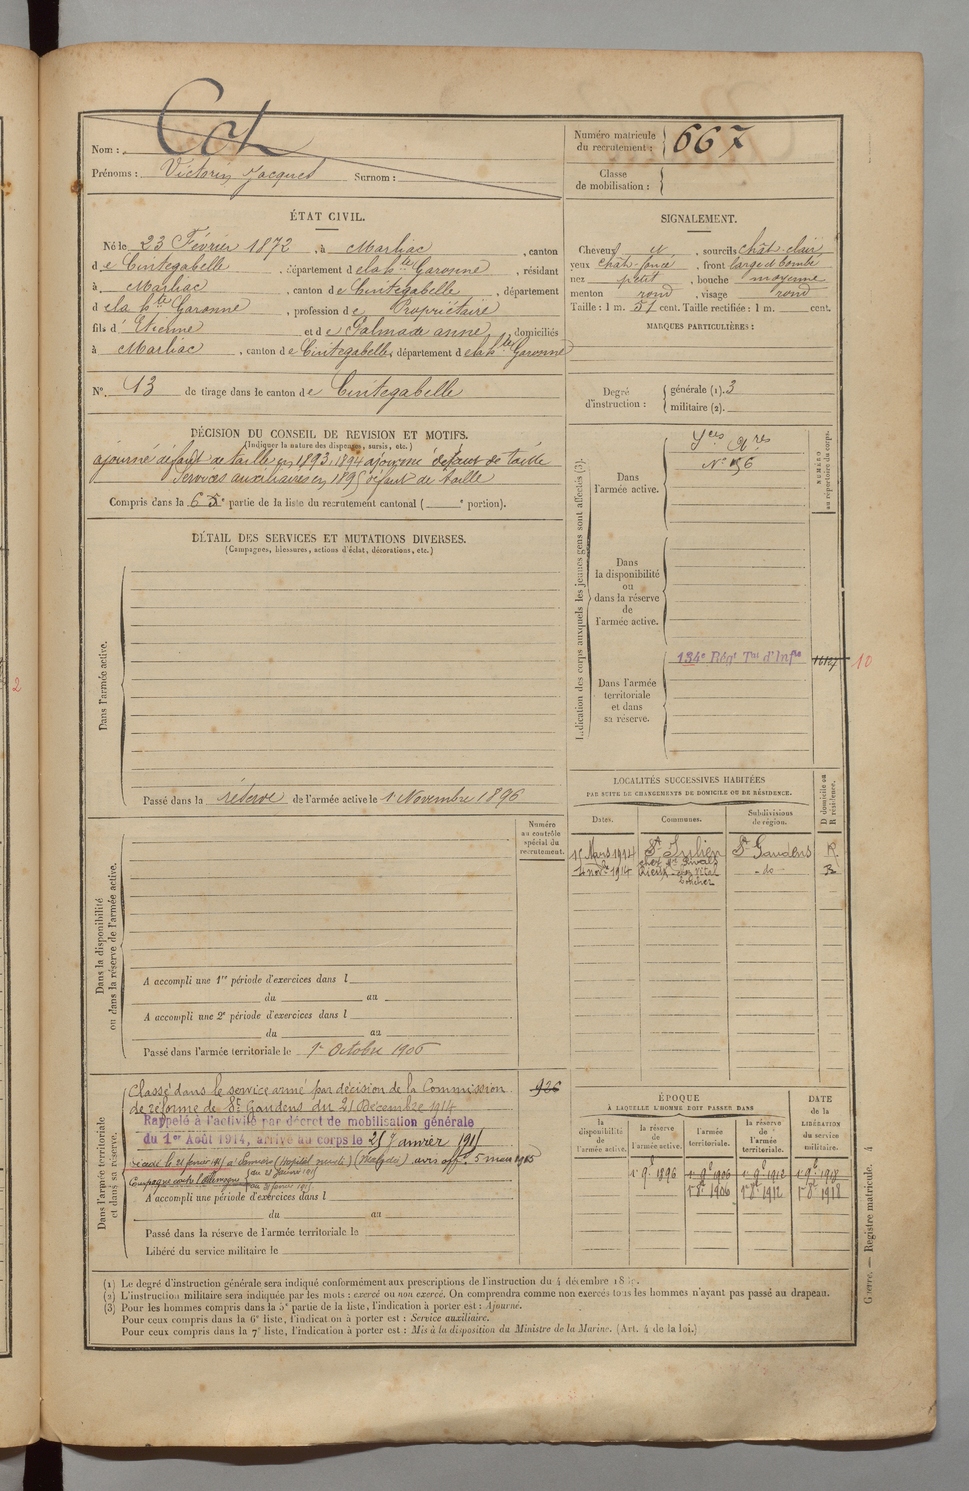 Nom : Cot
Prénoms : Victorin Jacques Surnom :
Numéro matricule du recrutement : 667
Classe de mobilisation :
ÉTAT CIVIL.
Né le 23 Février 1872, à Marliac, canton
de Cintegabelle, département de la hte Garonne, résidant
à Marliac, canton de Cintegabelle, département
de la hte Garonne, profession de Propriétaire
fils d'Etienne et de Palmade anne, domiciliés
à Marliac, canton de Cintegabelle, département de la hte Garonne
No. 13 de tirage dans le canton de Cintegabelle
SIGNALEMENT.
Cheveux et, sourcils chât. clair
yeux chât. foncé, front large et bombé
nez petit, bouche moyenne
menton rond, visage rond
Taille : 1 m. 51 cent. Taille rectifiée : 1 m. cent.
MARQUES PARTICULIÈRES :
Degré d'instruction : générale (1). 3
militaire (2).
DÉCISION DU CONSEIL DE REVISION ET MOTIFS.
(Indiquer la nature des dispenses, sursis, etc.)
ajourné défaut de taille en 1893, 1894 ajourné défaut de taille
Services auxiliaires en 1895 défaut de taille
Compris dans la 6e partie de la liste du recrutement cantonal ( e portion).
DÉTAIL DES SERVICES ET MUTATIONS DIVERSES.
(Campagnes, blessures, actions d'éclat, décorations, etc.)
Dans l'armée active.
Passé dans la réserve de l'armée active le 1 Novembre 1896
Indication des corps auxquels les jeunes gens sont affectés (3).
NUMÉRO au répertoire du corps.
Dans l'armée active.
Sces Ares
No 56
Dans la disponibilité ou dans la réserve de l'armée active.
Dans l'armée territoriale et dans sa réserve.
134e Régt Tal d'Infie
10
2
LOCALITÉS SUCCESSIVES HABITÉES
PAR SUITE DE CHANGEMENTS DE DOMICILE OU DE RÉSIDENCE.
Dates. Communes. Subdivisions de région. D domicile ou R résidence.
15 Mars 1914 St Julien St Gaudens R
4 novbre 1914 Rieux chez Vital - do - R
Numéro au contrôle spécial du recrutement.
Dans la disponibilité ou dans la réserve de l'armée active.
A accompli une 1re période d'exercices dans l
du au
A accompli une 2e période d'exercices dans l
du au
Passé dans l'armée territoriale le 1er Octobre 1906
Dans l'armée territoriale et dans sa réserve.
Classé dans le service armé par décision de la Commission
de réforme de St Gaudens du 21 Décembre 1914
926
Rappelé à l'activité par décret de mobilisation générale
du 1er Août 1914, arrivé au corps le 21 Janvier 1915
avis off. 5 mars 1915
Campagne contre l'Allemagne
A accompli une période d'exercices dans l
du au
Passé dans la réserve de l'armée territoriale le
Libéré du service militaire le
ÉPOQUE
À LAQUELLE L'HOMME DOIT PASSER DANS
la disponibilité de l'armée active. la réserve de l'armée active. l'armée territoriale. la réserve de l'armée territoriale.
DATE de la LIBÉRATION du service militaire.
1er 9e 1896 1er 9e 1906 1er 9e 1912 1er 9e 1918
1er 8e 1906 1er 8e 1912 1er 8e 1918
(1) Le degré d'instruction générale sera indiqué conformément aux prescriptions de l'instruction du 4 décembre
(2) L'instruction militaire sera indiquée par les mots : exercé ou non exercé. On comprendra comme non exercés tous les hommes n'ayant pas passé au drapeau.
(3) Pour les hommes compris dans la 5e partie de la liste, l'indication à porter est : Ajourné.
Pour ceux compris dans la 6e liste, l'indication à porter est : Service auxiliaire.
Pour ceux compris dans la 7e liste, l'indication à porter est : Mis à la disposition du Ministre de la Marine. (Art. 4 de la loi.)
Guerre. — Registre matricule. 4